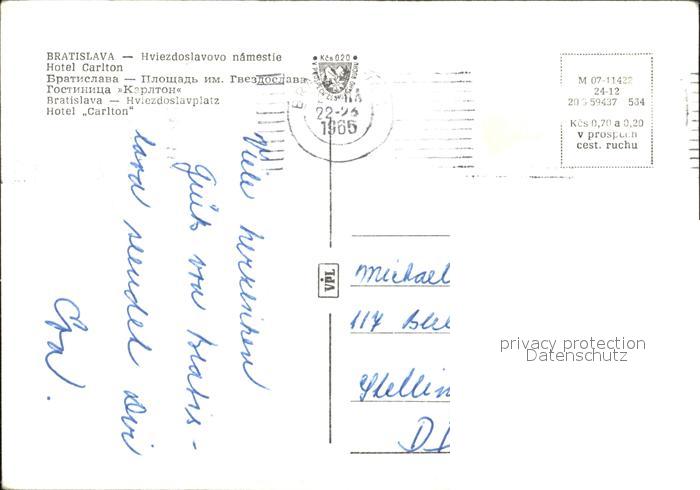 BRATISLAVA — Hviezdoslavovo námestie
Hotel Carlton
Братислава — Площадь им. Гвездослава
Гостиница »Карлтон«
Bratislava — Hviezdoslavplatz
Hotel „Carlton“
Kčs 0,20
22-23
1965
M 07-11422
24-12
20 3 59437 534
Kčs 0,70 a 0,20
v prospěch
cest. ruchu
Viele herzlichen
Gruß von Bratis-
lava sendet Dir
Eva.
VPL
Michael
117
Stellin
D
privacy protection
Datenschutz